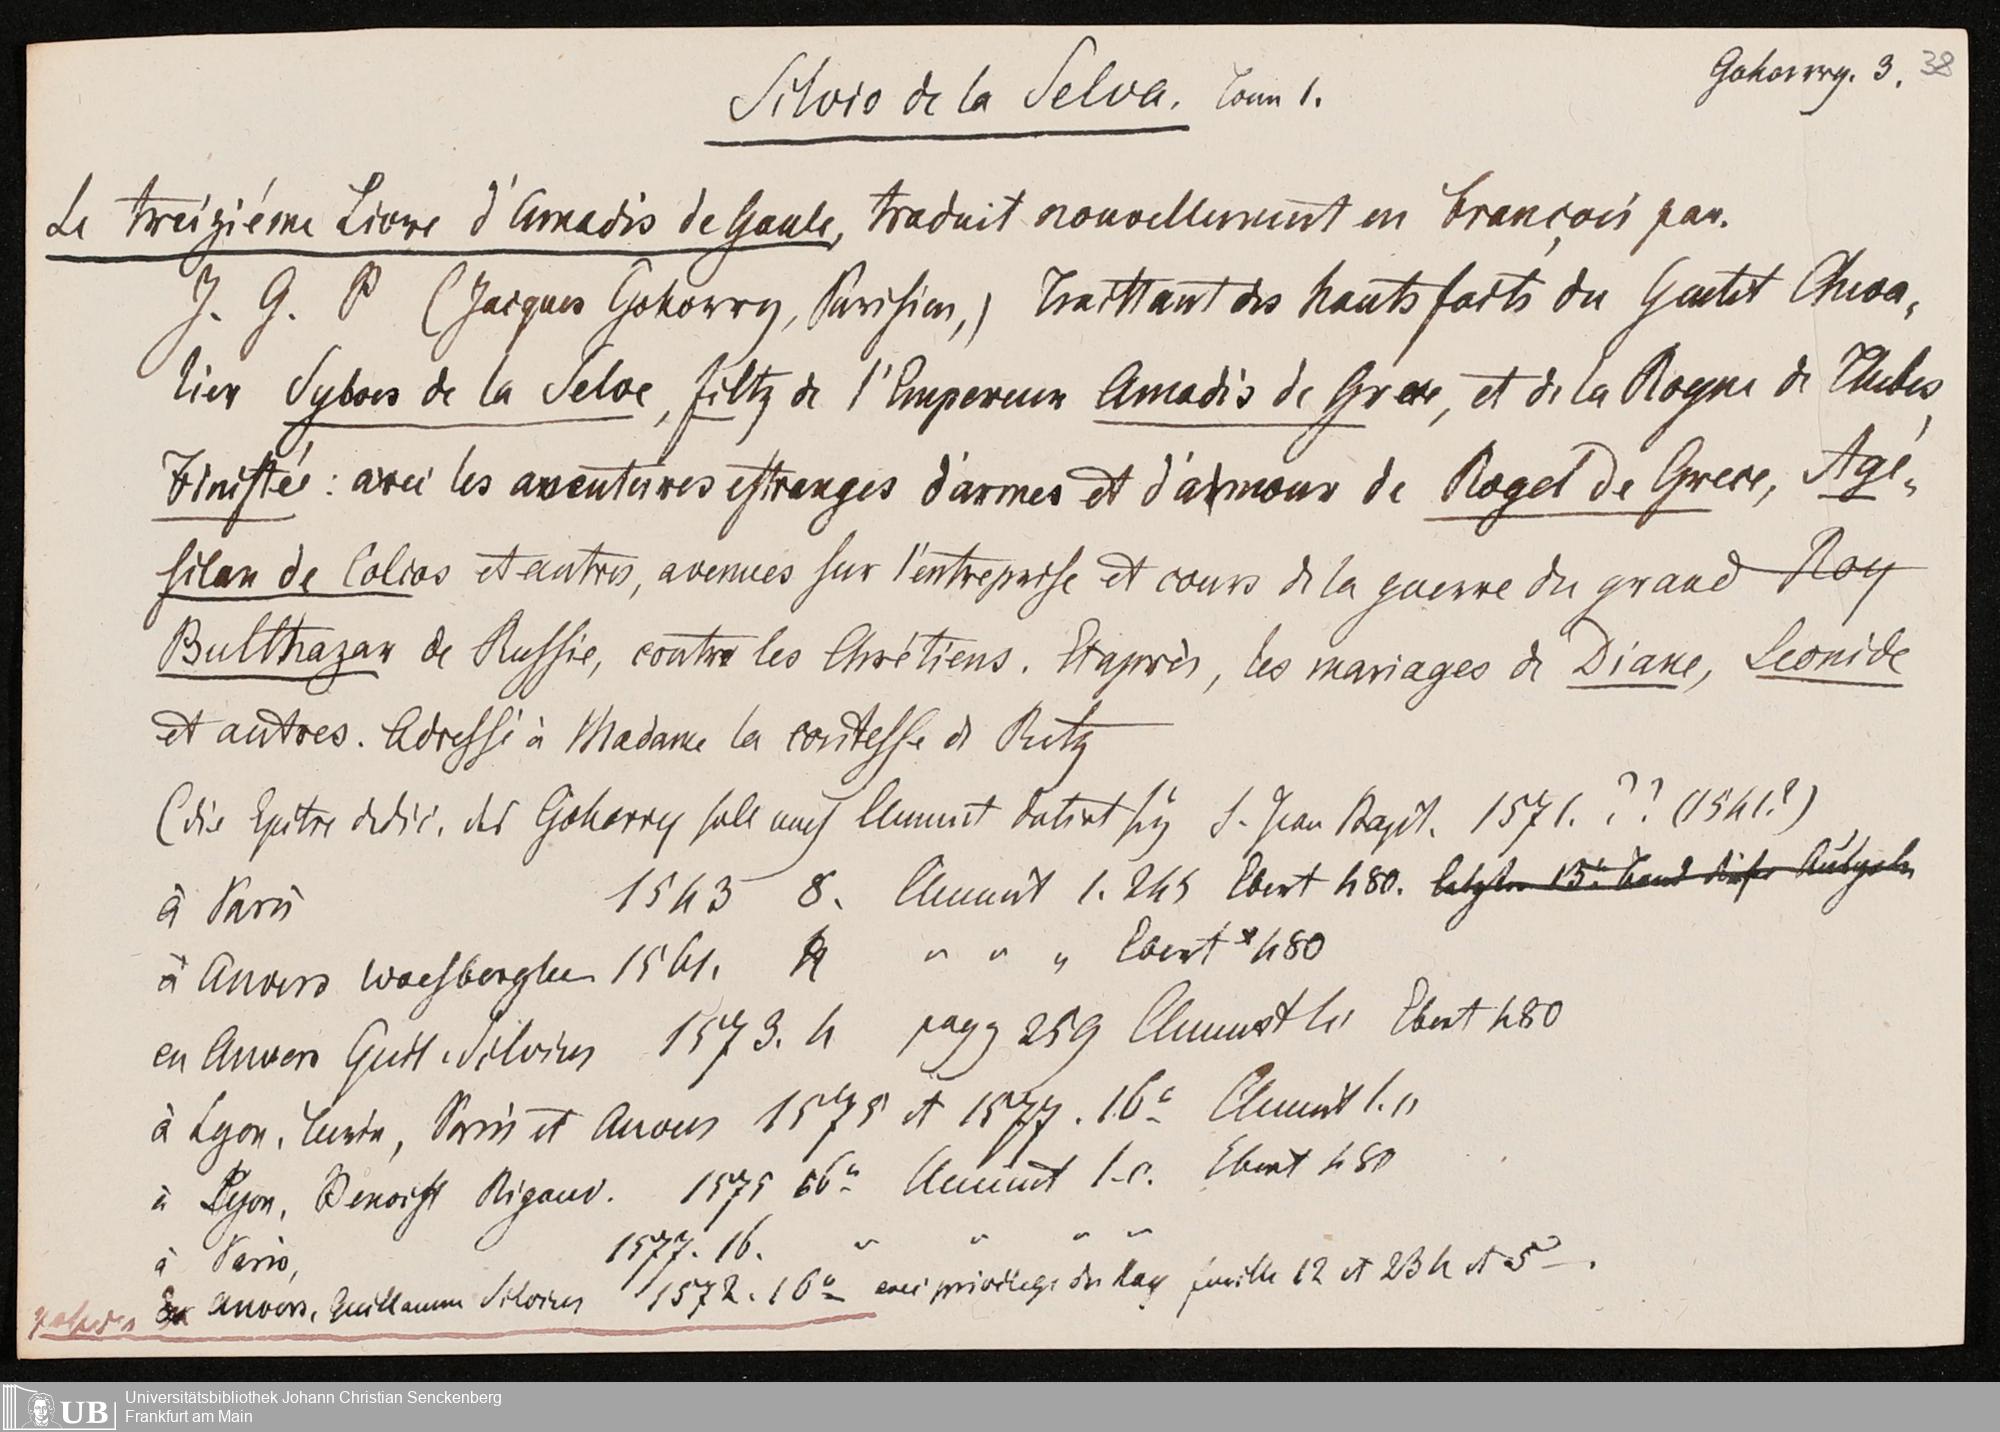 Silvio de la Selva. Tom 1.
Gohorry. 3. 38
Le treiziéme Livre d'Amadis de Gaule, traduit nouvellement en françois par.
J. G. P (Jacques Gohorry, Parisien,) Traittant des hauts faits du Gentil Cheva-
lier Sylves de la Selve, filtz de l'Empereur Amadis de Grece, et de la Royne de Thebes
Finistée: avec les aventures estranges d'armes et d'amour de Rogel de Grece, Agé-
silan de Colcos et autres, avenues sur l'entreprise et cours de la guerre du grand Roy
Balthazar de Russie, contre les Chrétiens. Et après, les mariages de Diane, Leonide
et autres. Adressé à Madame la contesse de Retz
(die Epitre dedic. des Gohorry soll nach Clement datirt S. Jean Bapt. 1571. ?? (1541?)
à Paris 1543 8. Clement 1. 245 Ebert 480.
à Anvers Waesberghe 1561. 4 " " " Ebert 480
en Anvers Guil. Silvius 1573. 4 pagg 259 Clement l.c. Ebert 480
à Lyon, Turin, Paris et Anvers 1575 et 1577. 16° Clement l.c.
à Lyon, Benoist Rigaud. 1575 16° Clement l.c. Ebert 480
à Paris, 1577. 16. " " " "
En Anvers, Guillaume Silvius 1572. 16° avec privilege du Roy feuille 12 et 234 et 5